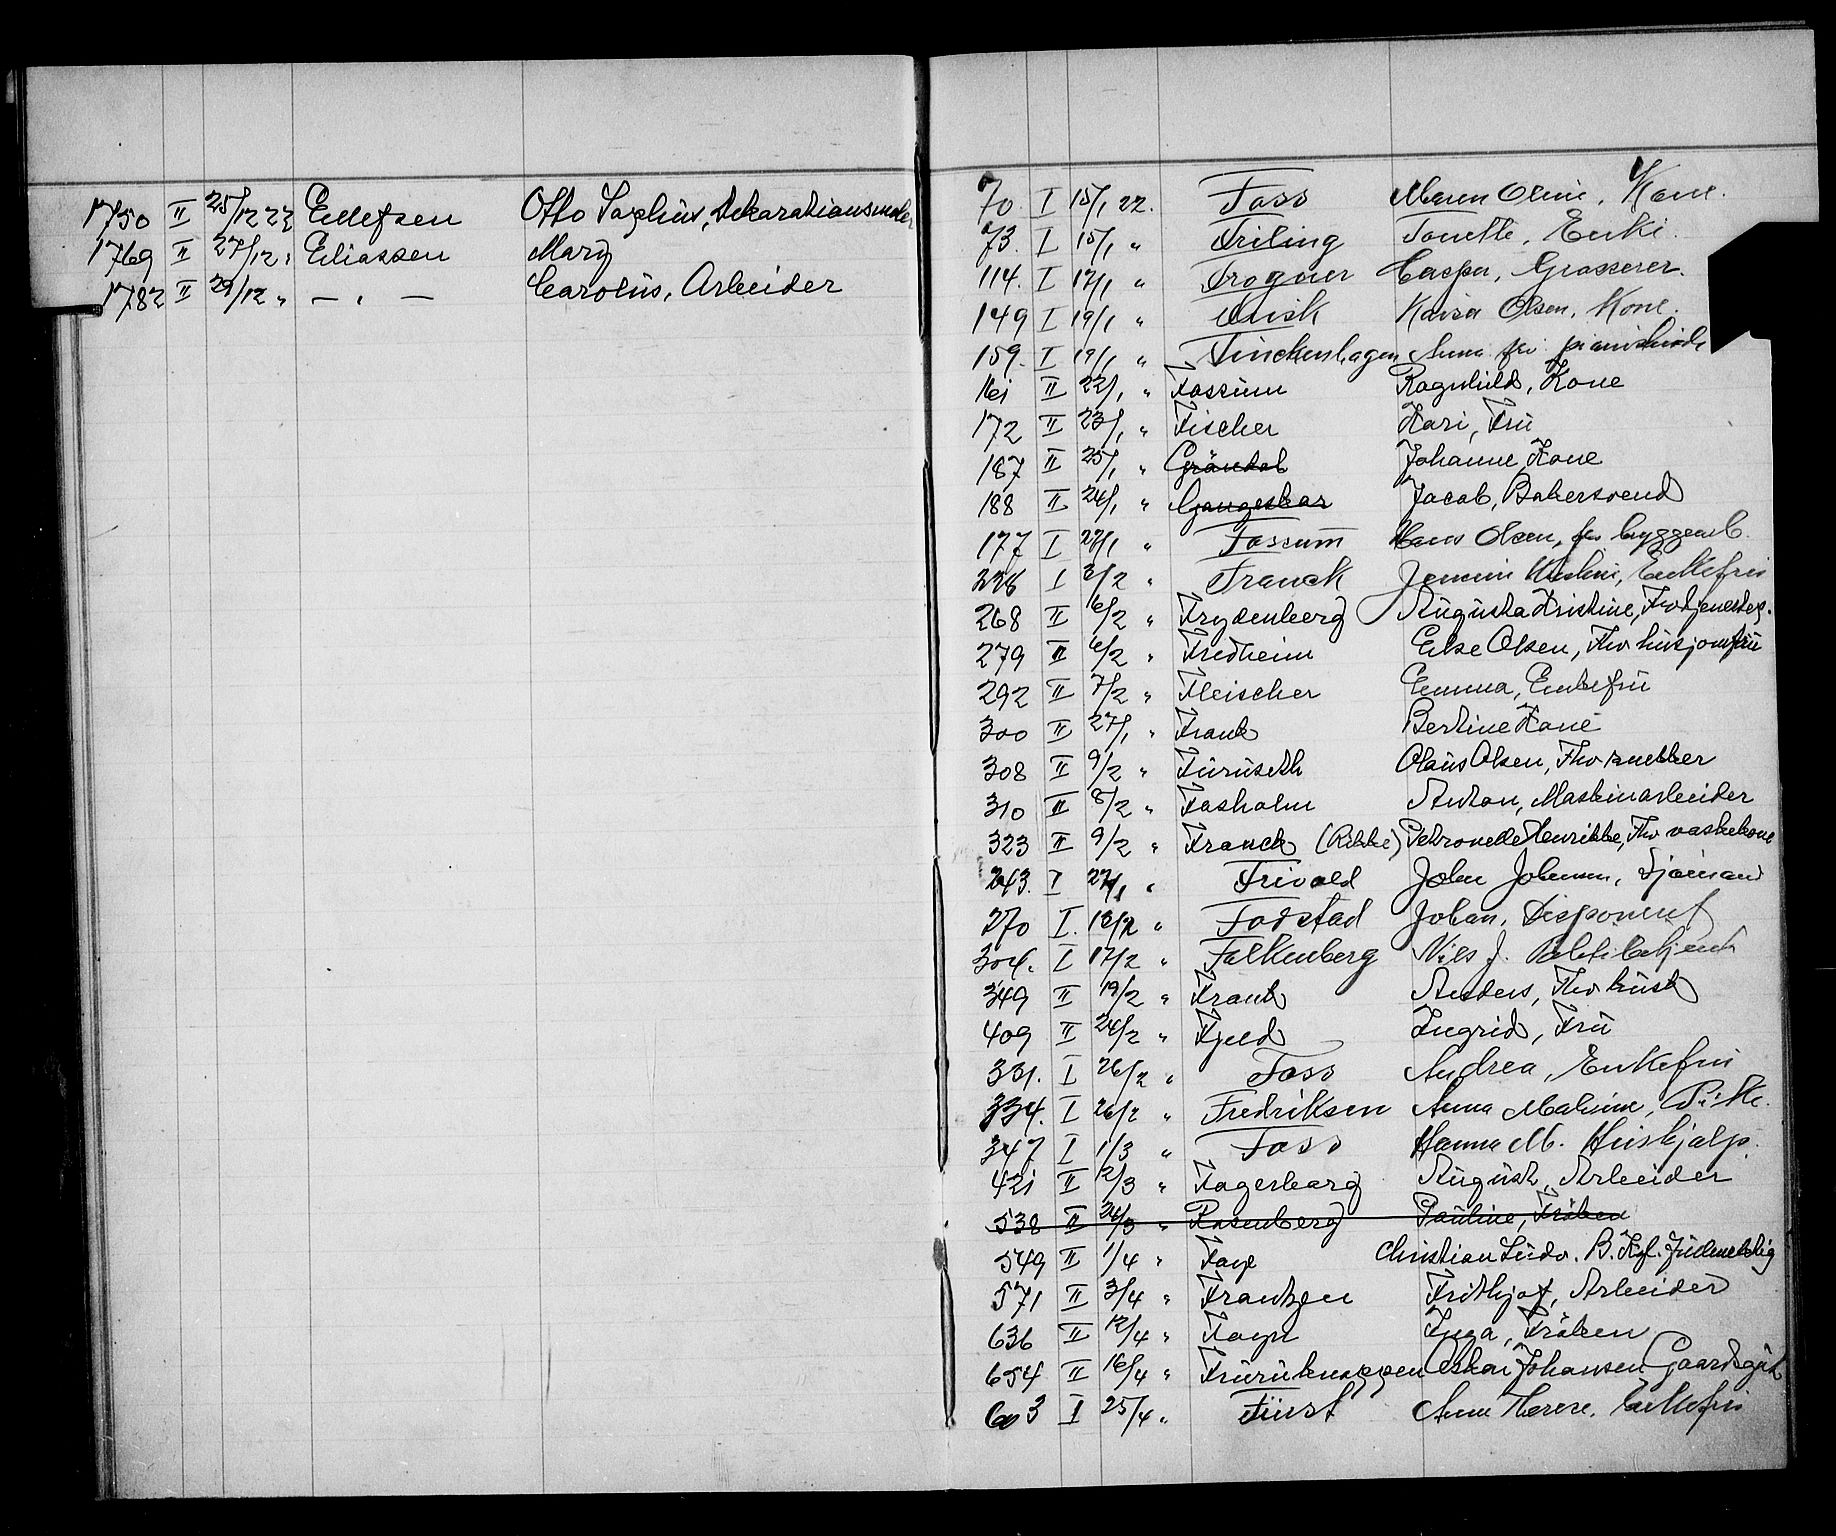 1750 II 25/12 22 Ellefsen Otto Sophus, Dekorationsmaler
1769 II 27/12 " Eliassen Mary
1782 II 29/12 " — " — Carolus, Arbeider
70 I 15/1 22. Foss Maren Oline, Kone.
73. I 15/1 " Friling Tonette, Enke.
114. I 17/1 " Frogner Casper, Grosserer.
149 I 19/1 " Kaisa Olsen, Kone.
159. I 19/1 " Finckenhagen Anna fr. pianistinde
161 II 22/1 " Fossum Ragnhild, Kone
172 II 23/1 " Fischer Kari, Frü
187 II 25/1 " Gröndal Johanne, Kone
188 II 24/1 " Gangeskar Jacob, Bakersvend
177 I 27/1 " Fossum Hans Olsen, fhv byggearb.
228 I 3/2 " Franck Enkefru
268 II 6/2 " Frydenberg Augusta Kristine, Fhv tjenestep.
279 II 6/2 " Fredheim Else Olsen, Fhv husjomfrü
292 II 7/2 " Fleischer Emma, Enkefrü
300 II 27/1 " Frank Bertine Kone
308 II 9/2 " Furuseth Olaus Olsen, Fhv snekker
310 II 8/2 " Fosholm Anton, Maskinarbeider
323 II 9/2 " Franck (Rikke) Petronelle Henrikke, Fhv vaskekone
243. I 27/1 " Frivold John Johansen, Sjömand
270 I. 13/2 " Fodstad Johan, Disponent
304. I 17/2 " Falkenberg Nils J. Politibetjent
349 II 19/2 " Frank Anders, Fhv kusk
409 II 24/2 " Fjeld Ingrid, Frü
331. I 26/2 " Foss Andrea, Enkefru
334. I 26/2 " Fredriksen Anna Maline, Pike.
347 I 1/3 " Foss Hanna M. Hushjelp.
421 II 2/3 " Fagerborg August, Arbeider
538 II 24/3 " Rosenberg Pauline, Fröken
549 II 1/4 " Faye Christian Ludv. B. Kgl. Fuldmektig
571 II 3/4 " Frantzen Frithjof, Arbeider
636 II 12/4 " Inga, Fröken
654 II 16/4 " Furuknappen Oskar Johansen Gaardsgut
603 I 25/4 " Fürst Anne Enkefru